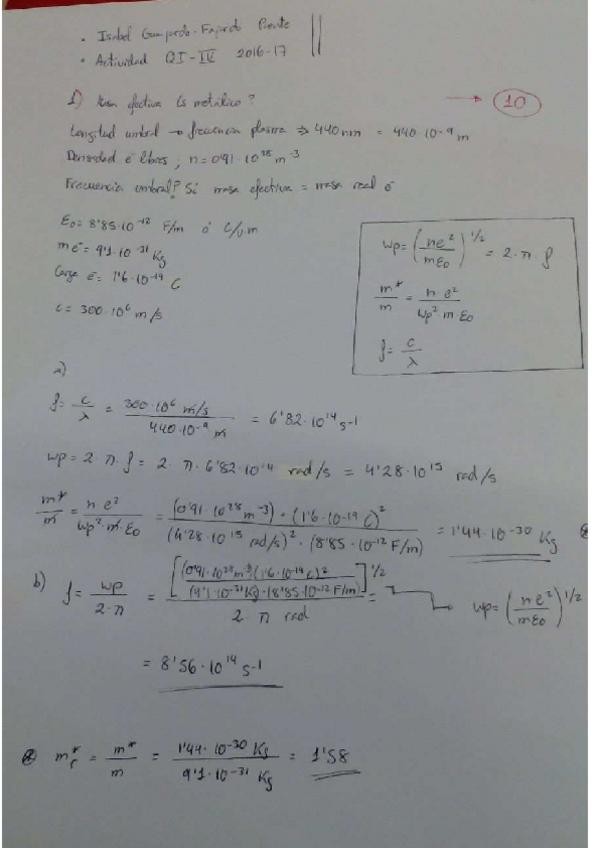 . Isabel Guajardo-Fajardo Puente
. Actividad QI-IV 2016-17
1) Masa efectiva Cs metálico? → 10
Longitud umbral → frecuencia plasma ⇒ 440 nm = 440·10⁻⁹ m
Densidad e⁻ libres; n = 0'91·10²⁸ m⁻³
Frecuencia umbral? Si masa efectiva = masa real e⁻
ε₀ = 8'85·10⁻¹² F/m ó C/v.m
m e⁻ = 9'1·10⁻³¹ Kg
Carga e⁻ = 1'6·10⁻¹⁹ C
c = 300·10⁶ m/s
wp = (ne²/mε₀)^1/2 = 2·π·f
m*/m = n·e²/wp² m ε₀
f = c/λ
a)
f = c/λ = 300·10⁶ m/s / 440·10⁻⁹ m = 6'82·10¹⁴ s⁻¹
wp = 2·π·f = 2·π·6'82·10¹⁴ rad/s = 4'28·10¹⁵ rad/s
m*/m = n e²/wp² m·ε₀ = (0'91·10²⁸ m⁻³)·(1'6·10⁻¹⁹ C)² / (4'28·10¹⁵ rad/s)²·(8'85·10⁻¹² F/m) = 1'44·10⁻³⁰ Kg ⊛
b) f = wp/2·π = [(0'91·10²⁸ m⁻³)(1'6·10⁻¹⁹ C)² / (9'1·10⁻³¹ Kg)·(8'85·10⁻¹² F/m)]^1/2 / 2·π rad = → wp = (ne²/mε₀)^1/2
= 8'56·10¹⁴ s⁻¹
⊛ m*r = m*/m = 1'44·10⁻³⁰ Kg / 9'1·10⁻³¹ Kg = 1'58